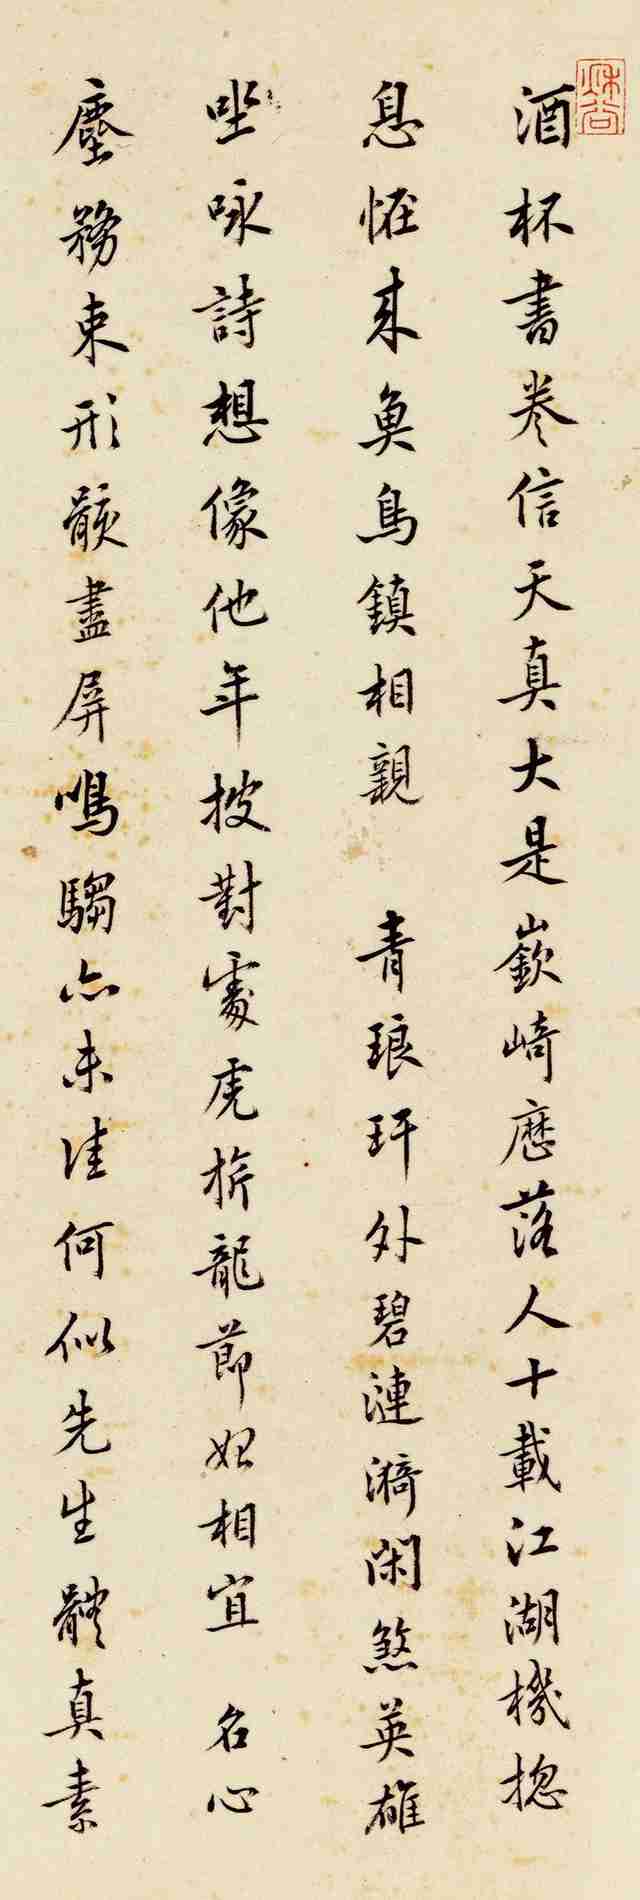 酒杯書卷信天真大是嶔崎歷落人十載江湖機揔
息恠來魚鳥鎮相親 青琅玕外碧漣漪閑煞英雄
坐咏詩想像他年披對處虎旂龍節始相宜 名心
塵務束形骸盡屏鳴騶亦未佳何似先生體真素